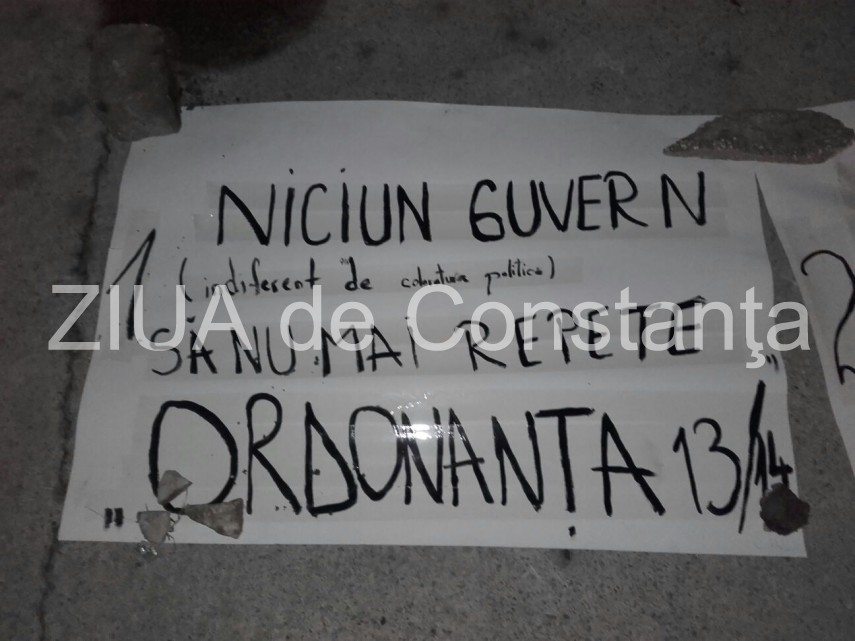 NICIUN GUVERN
1 (indiferent de coloratura politica)
ZIUA de Constanţa
SĂ NU MAI REPETE
„ORDONANȚA 13/14"
2